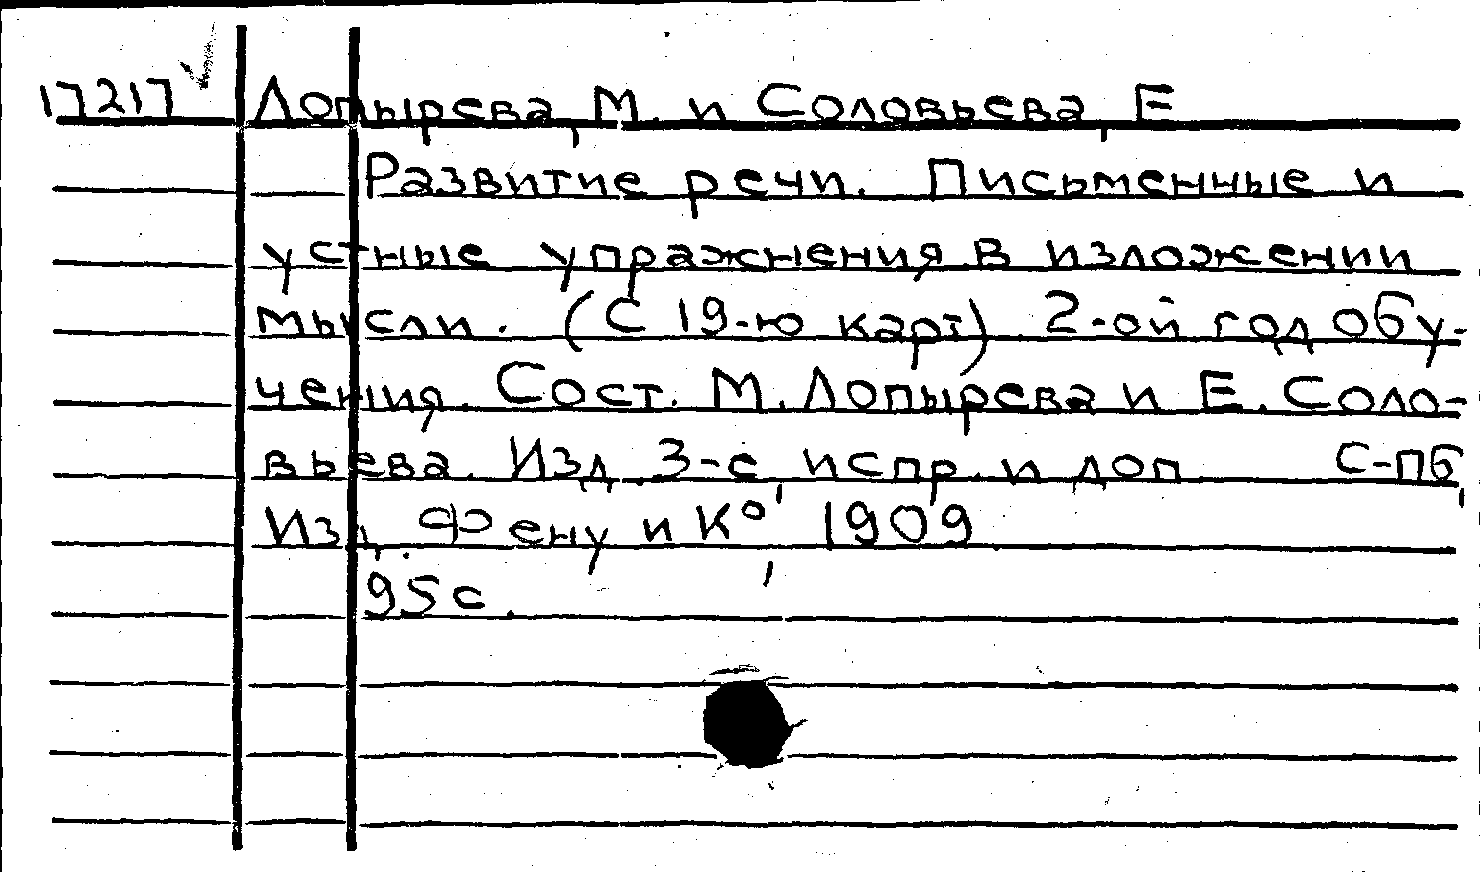 17217 Лопырева, М. и Соловьева, Е
Развитие речи. Письменные и
устные упражнения в изложении
мысли. (С 19-ю карт). 2-ой год обу-
чения. Сост. М. Лопырева и Е. Соло-
вьева. Изд. 3-е, испр. и доп С-пб,
Изд. Фену и К°, 1909
95 с.